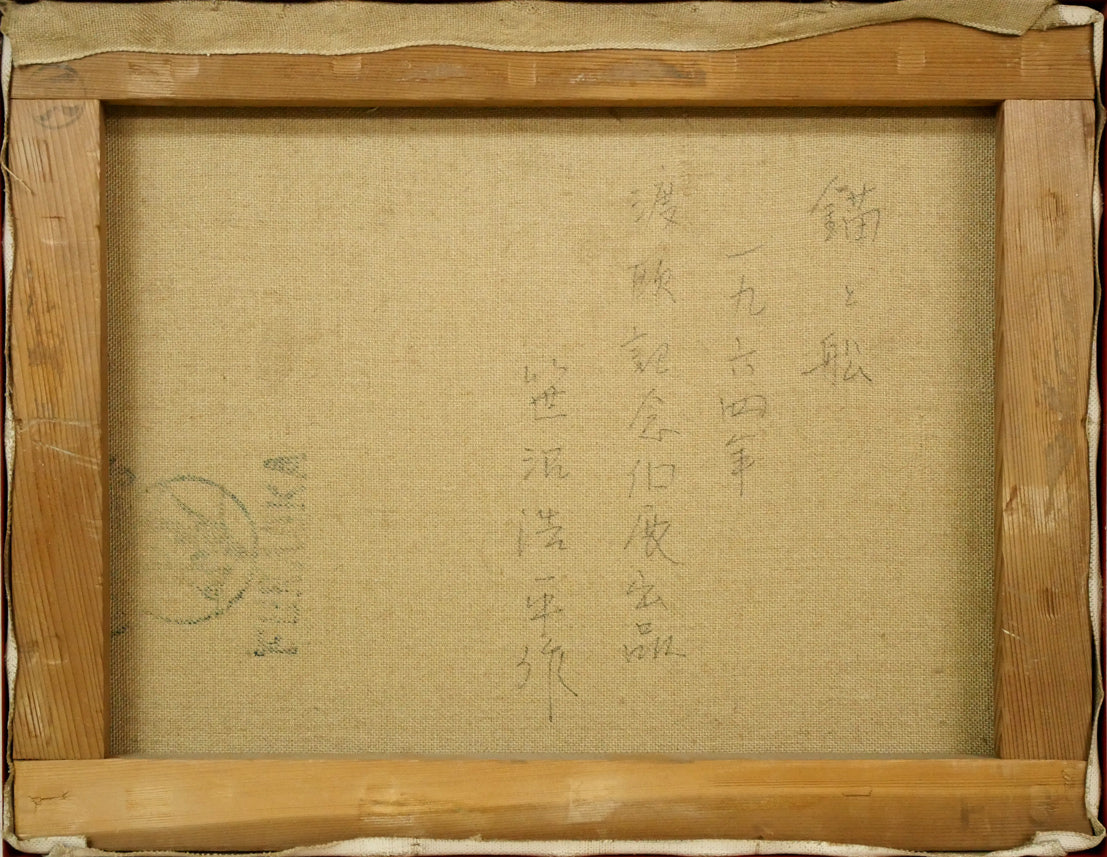 錨と舩
一九六四年
渡欧記念個展出品
笹沼浩平作